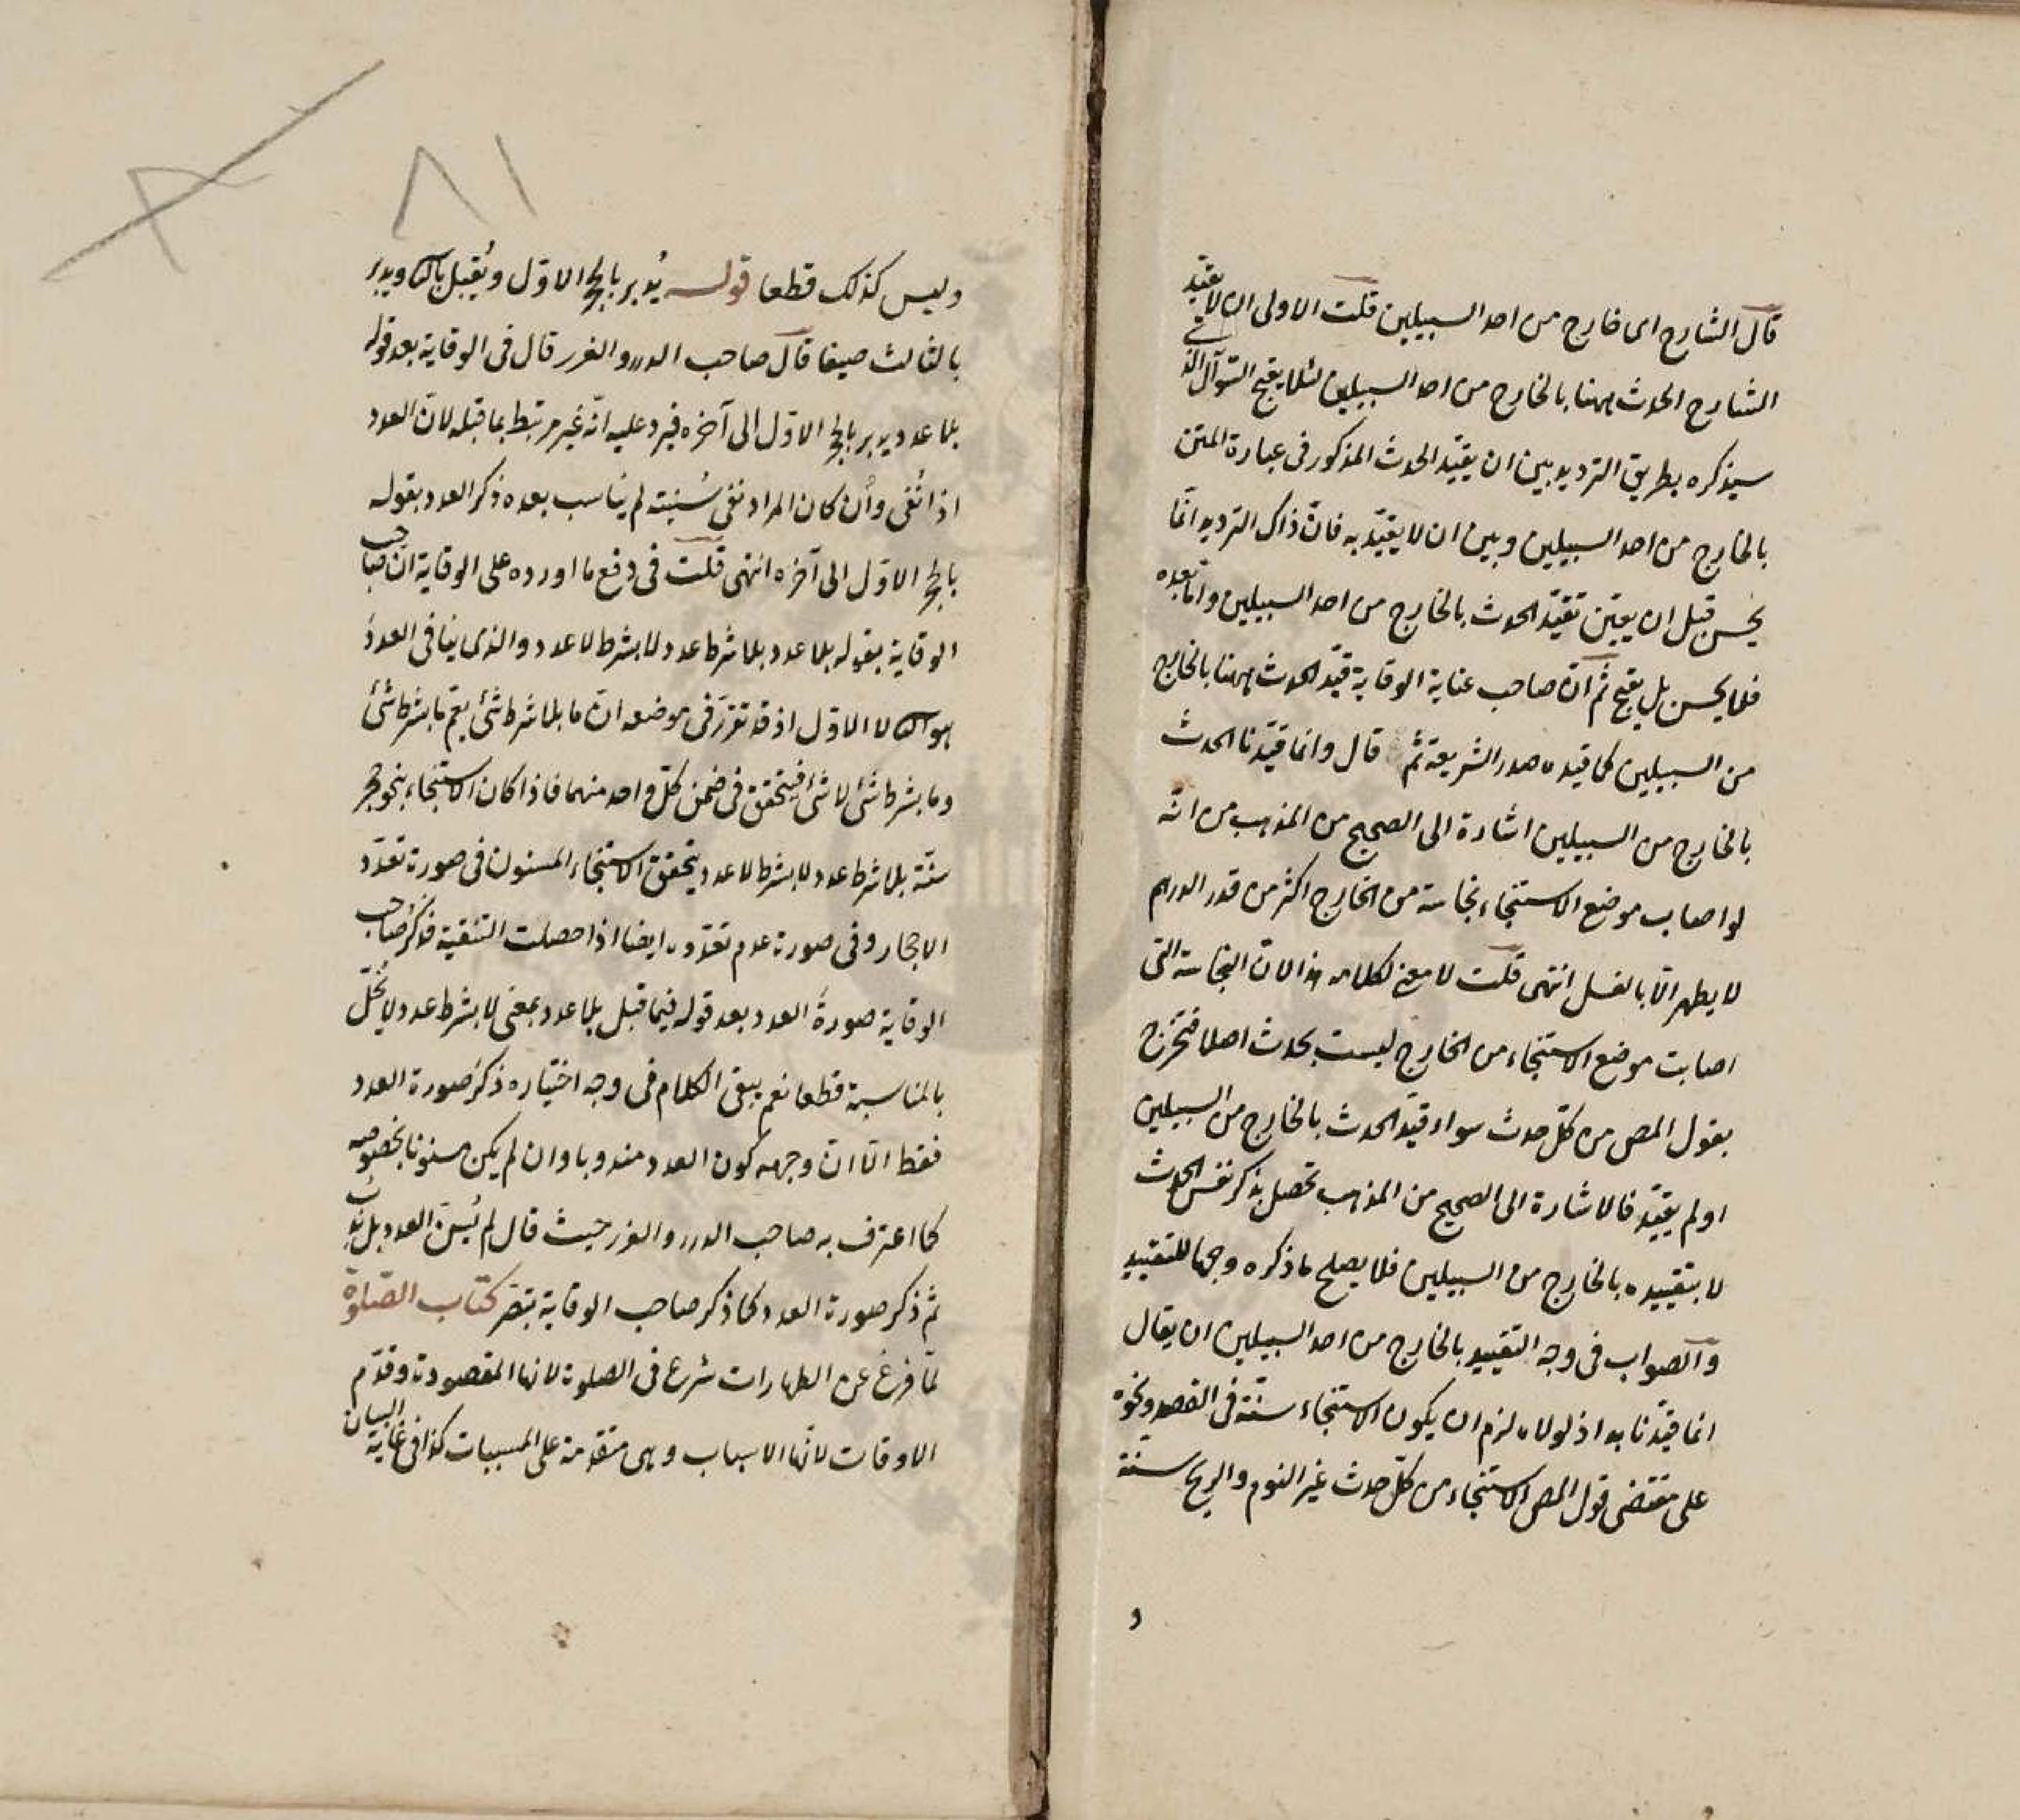 قال الشارح اى خارج من احد السبيلين قلت الاولى ان لا يقيّد
الشارح الحدث ههنا بالخارج من احد السبيلين لئلا يقبح السّوآل الذى
سيذكره بطريق الترديد بين ان يقيّد الحدث المذكور فى عبارة المتن
بالخارج من احد السبيلين وبين ان لا يقيّد به فانّ ذاك الترديد انّما
يحسن قبل ان يعيّن تقيّد الحدث بالخارج من احد السبيلين وامّا بعده
فلا يحسن بل يقبح ثم انّ صاحب عناية الوقاية قيّد الحدث ههنا بالخارج
من السبيلين كما قيده صدر الشريعة ثم قال وانما قيّدنا الحدث
بالخارج من السبيلين اشارة الى الصحيح من المذهب من انّه
لو اصاب موضع الاستنجاء نجاسة من الخارج اكثر من قدر الدرهم
لا يطهر الّا بالغسل انتهى قلت لا معنى لكلامه هذا لان النجاسة التى
اصابت موضع الاستنجاء من الخارج ليست بحدث اصلا فتخرج
بقول المص من كلّ حدث سواء قيّد الحدث بالخارج من السبيلين
او لم يقيّد فالاشارة الى الصحيح من المذهب تحصل بذكر نفس الحدث
لا بتقييده بالخارج من السبيلين فلا يصلح ما ذكره وجها للتقييد
والصواب فى وجه التقييد بالخارج من احد السبيلين ان يقال
انما قيّدنا به اذ لولاه لزم ان يكون الاستنجاء سنّة فى الفصد ونحوه
على مقتضى قول المص الاستنجاء من كلّ حدث غير النوم والريح سنة
و
وليس كذلك قطعا قوله يُدبر بالحجر الاوّل ويُقبل بالثانى ويدبر
بالثالث صيفا قال صاحب الدرر والغرر قال فى الوقاية بعد قوله
بلا عدد يدبر بالحجر الاوّل الى آخره فيرد عليه انّه غير مرتبط بما قبله لانّ العدد
اذا نُفى وأن كان المراد نفى سُنيته لم يناسب بعده ذكر العدد بقوله
بالحجر الاوّل الى آخره انتهى قلت فى دفع ما اورده على الوقاية انّ صاحب
الوقاية بقوله بلا عدد بلا شرط عدد لا بشرط لا عدد والذى ينافى العددَ
هو الثانى لا الاوّل اذ قد تقرّر فى موضعه انّ ما بلا شرط شئ يعمّ ما بشرط شئ
وما بشرط شئ لا شئ فيتحقق فى ضمن كلّ واحد منهما فاذا كان الاستنجاء بنحو حجر
سنّة بلا شرط عدد لا بشرط لا عدد يتحقق الاستنجاء المسنون فى صورة تعدّد
الاحجار وفى صورة عدم تعدّده ايضا اذا حصلت التنقية فذكرُ صاحب
الوقاية صورةَ العدد بعد قوله فيما قبل بلا عدد بمعنى لا بشرط عدد لا يُخلّ
بالمناسبة قطعا نعم يبقى الكلام فى وجه اختياره ذكرَ صورة العدد
فقط الّا انّ وجهه كون العدد مندوبا وان لم يكن مسنونا بخصوصه
كما اعترف به صاحب الدرر والغرر حيث قال لم يُسنّ العدد بل نُدب
ثم ذكر صورة العدد كما ذكر صاحب الوقاية بتصر كتاب الصّلوة
لمّا فرغ عن الطهارات شرع فى الصلوة لانها المقصودة وقدّم
الاوقات لانّها الاسباب وهى متقدمة على المسببات كذا فى غاية البيان
٨١